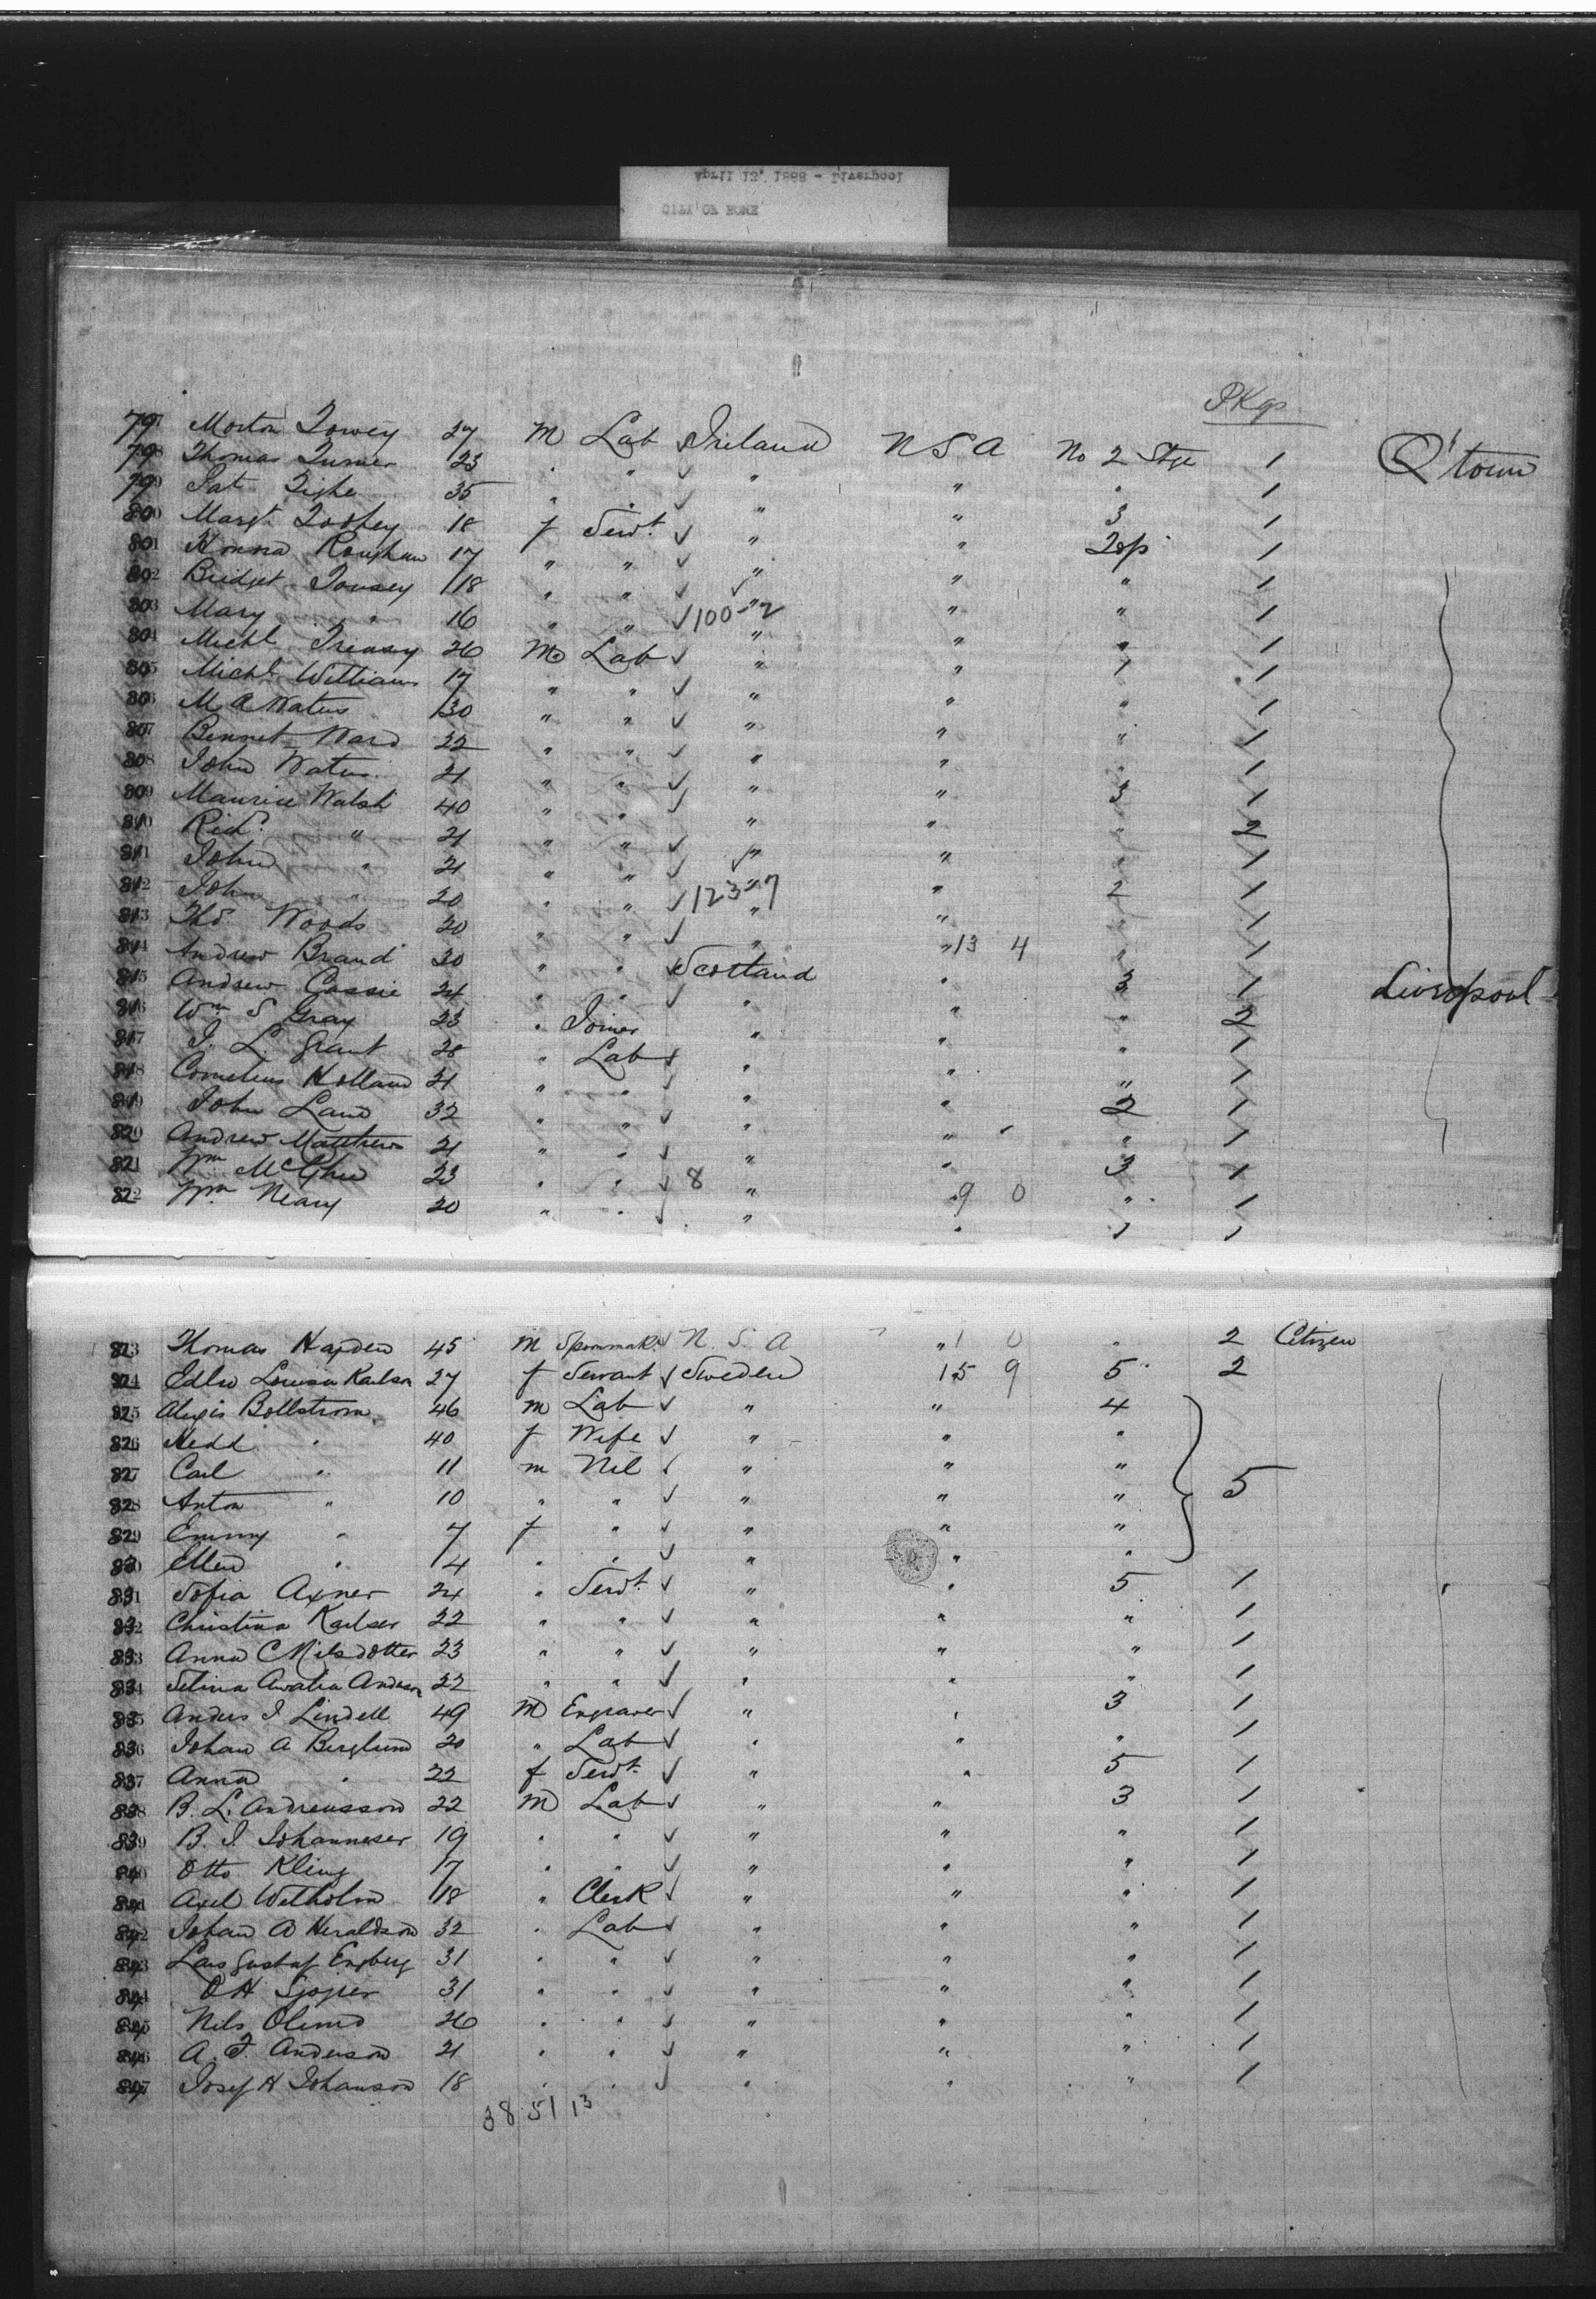 April 12, 1888 - Liverpool
CITY OF ROME
Pkgs
797 Morton Towey 27 M Lab ✓ Ireland U S A No 2 Stge 1 Q'town
798 Thomas Turner 23 " " ✓ " " " 1
799 Pat Tighe 35 " " ✓ " " 3 1
800 Margt Toohey 18 f Servt ✓ " " 2 op 1
801 Honna Roughan 17 " " ✓ " " " 1
802 Bridget Tousey 18 " " ✓ " " " 1
803 Mary " 16 " " ✓ 100-2 " " " 1
804 Michl Treasy 26 M Lab ✓ " " 1 1
805 Michl Williams 17 " " ✓ " " " 1
806 M A Waters 30 " " ✓ " " " 1
807 Bennet Ward 22 " " ✓ " " " 1
808 John Waters 21 " " ✓ " " 3 1
809 Maurice Walsh 40 " " ✓ " " " 2
810 Richd " 21 " " ✓ " " " 1
811 John " 21 " " ✓ " " 2 1
812 John " 20 " " ✓ 123-7 " " " 1
813 Thos Woods 20 " " ✓ " " 13 4 " 1
814 Andrew Brand 30 " " ✓ Scotland " 3 1 Liverpool
815 Andrew Cassie 24 " " ✓ " " " 2
816 Wm S Gray 23 " Joiner " " " 1
817 J. L. Grant 28 " Lab ✓ " " " 1
818 Cornelius Holland 21 " " ✓ " " 2 1
819 John Laud 32 " " ✓ " " " 1
820 Andrew Matthews 21 " " ✓ " " 3 1
821 Wm McGhee 23 " " ✓ 8 " " 9 0 " 1
822 Wm Neary 20 " " ✓ " " " "
823 Thomas Hayden 45 M ✓ U. S. A " 1 0 " 2 Citizen
824 Louisa Karlson 27 f Servant ✓ Sweden 15 9 5 2
825 Alexis Bollstrom 46 m Lab ✓ " " 4
826 Hedd " 40 f Wife ✓ " " "
827 Carl " 11 m Nil ✓ " " "
828 Anton " 10 " " ✓ " " " 5
829 Emmy " 7 f " ✓ " " "
830 Ellen " 4 " " ✓ " " "
831 Sofia Axner 24 " Servt ✓ " " 5 1
832 Christina Karlser 22 " " ✓ " " " 1
833 Anna C Nilsdotter 23 " " ✓ " " " 1
834 Selina Anderson 22 " " ✓ " " " 1
835 Anders J Lindell 49 M Engraver ✓ " " 3 1
836 Johan A Berglund 20 " Lab ✓ " " " 1
837 Anna " 22 f Servt ✓ " " 5 1
838 B. L. Andreasson 22 M Lab ✓ " " 3 1
839 B. J. Johanneser 19 " " ✓ " " " 1
840 Otto Kling 17 " " ✓ " " " 1
841 Axel Wetholm 18 " Clerk ✓ " " " 1
842 Johan A Heraldson 32 " Lab ✓ " " " 1
843 Lars Gustaf Engberg 31 " " ✓ " " " 1
844 O H 31 " " ✓ " " " 1
845 Nils 26 " " ✓ " " " 1
846 A. F. Anderson 21 " " ✓ " " " 1
847 Josef H Johanson 18 " " ✓ " " " 1
38 51 13